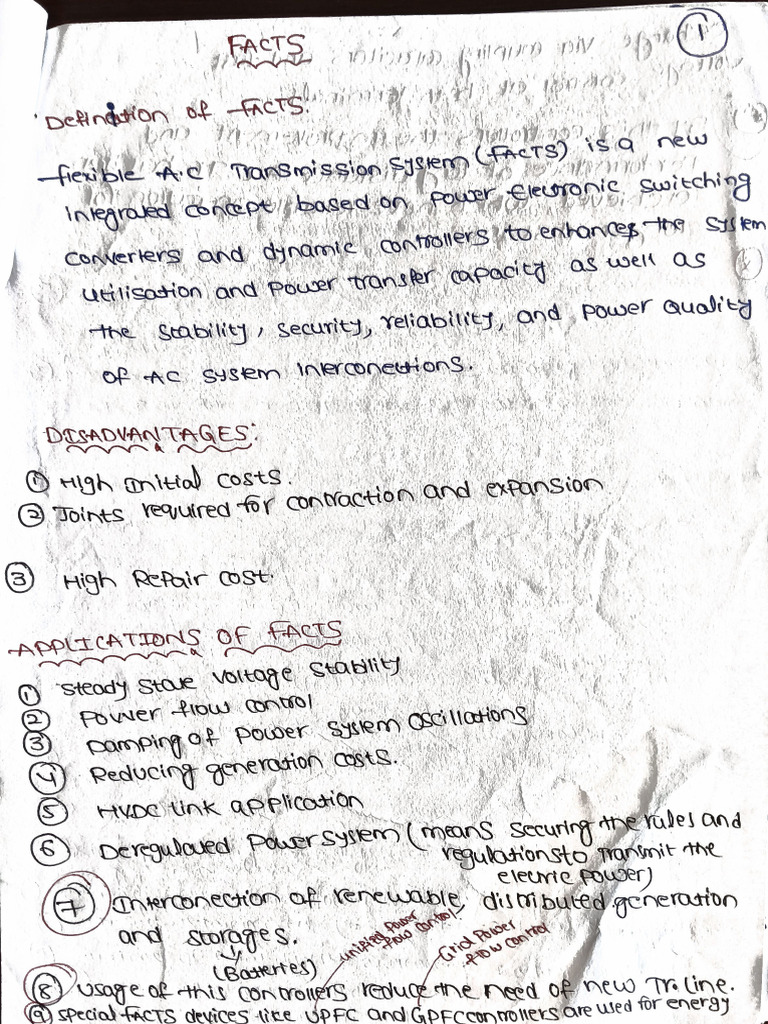 1
FACTS
Definition of FACTS:
Flexible A.C Transmission System (FACTS) is a new
integrated concept based on Power Electronic switching
converters and dynamic controllers to enhances the system
utilisation and power transfer capacity as well as
the stability, security, reliability, and power Quality
of AC system interconections.
DISADVANTAGES:
① High Initial costs.
② Joints required for contraction and expansion
③ High Repair cost.
APPLICATIONS OF FACTS
① Steady state voltage stability
② Power flow control
③ Damping of power system oscillations
④ Reducing generation costs.
⑤ HVDC link application
⑥ Deregulated Power system (means securing the rules and
regulations to transmit the
electric power)
⑦ Interconection of renewable, distributed generation
and storages.
(Batteries)
unified power
flow control
Grid Power
flow control
⑧ usage of this controllers reduce the need of new Tr. line.
⑨ Special FACTS devices like UPFC and GPFC controllers are used for energy